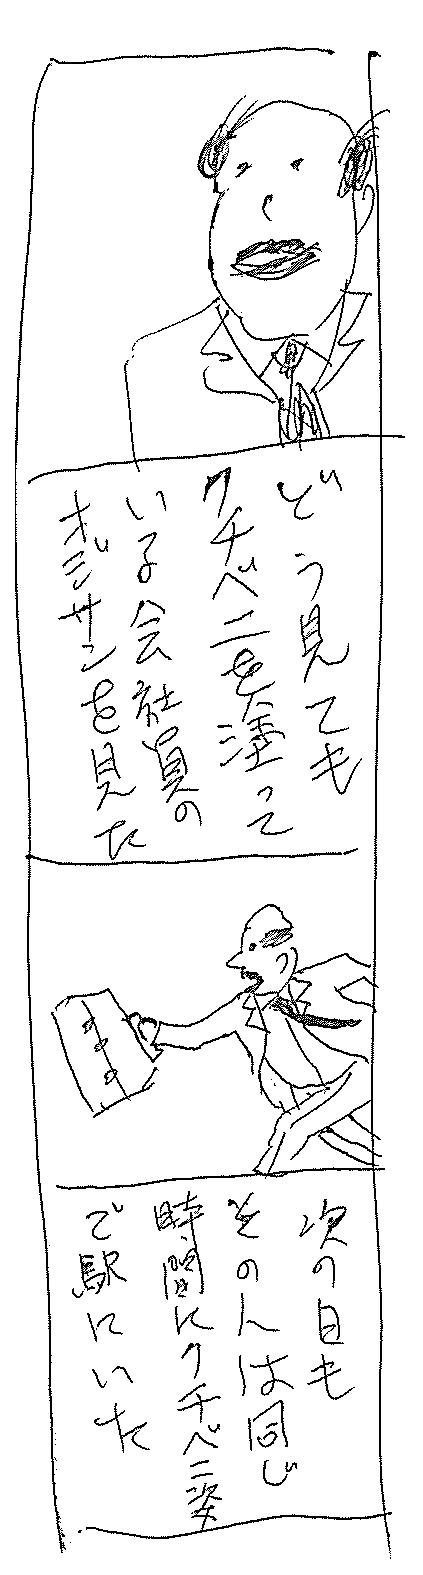 どう見ても
クチベニを塗って
いる会社員の
オジサンを見た
次の日も
その人は同じ
時間にクチベニ姿
で駅にいた